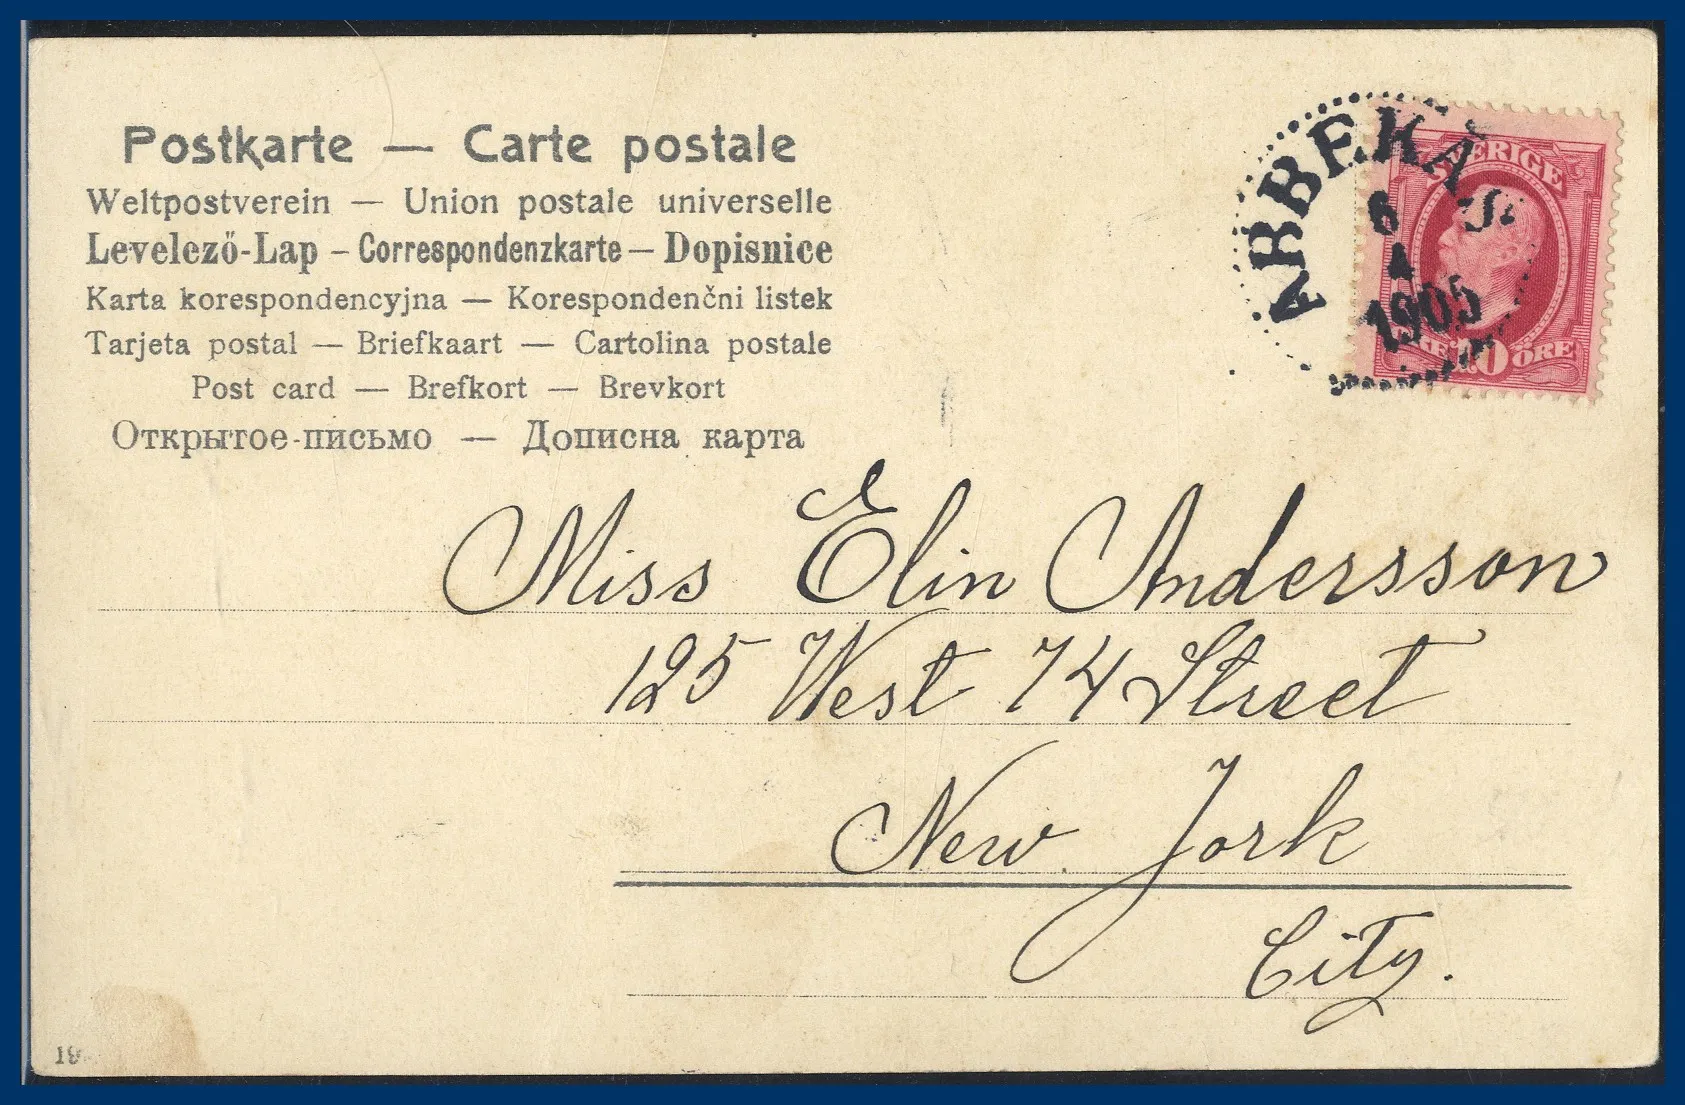 Postkarte — Carte postale
Weltpostverein — Union postale universelle
Levelező-Lap – Correspondenzkarte – Dopisnice
Karta korespondencyjna — Korespondenčni listek
Tarjeta postal — Briefkaart — Cartolina postale
Post card — Brefkort — Brevkort
Открытое-письмо — Дописна карта
ARBEKÅ
6
4
1905
SVERIGE
10 ÖRE
Miss Elin Andersson
125 West 74 Street
New York
City.